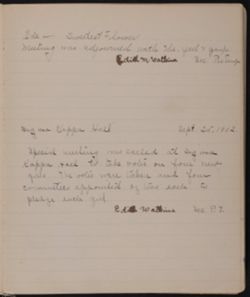 Ode — Sweetest Flower
Meeting was adjourned with the yell & song
Edith M. Watkins Sec. Pro temp.
Sigma Kappa Hall Sept. 25, 1912.
Special meeting was called at Sigma
Kappa Hall to take votes on four new
girls. The votes were taken and four
committees appointed by the
pledge each girl.
Edith Watkins Sec. P.T.